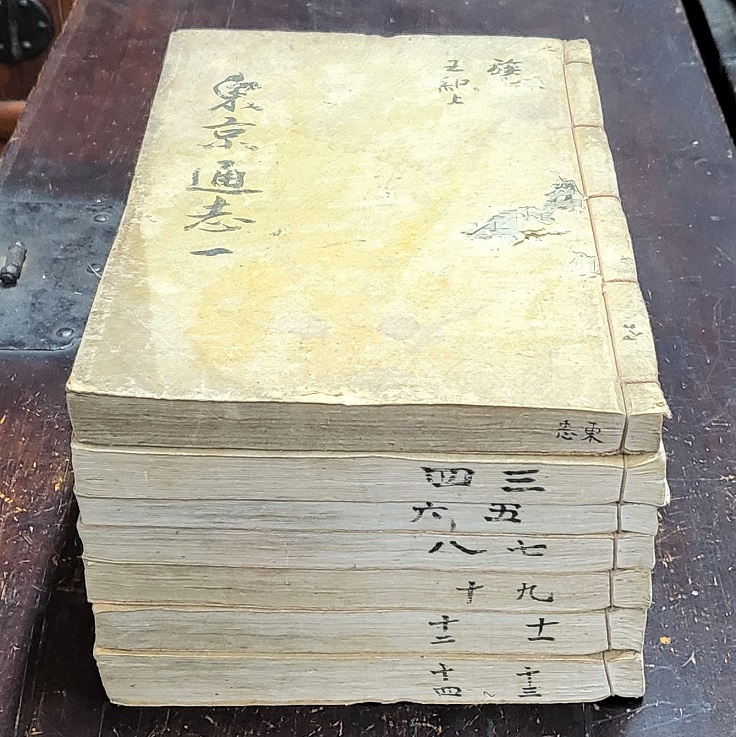 王紀上
東京通志一
東志
三 四
五 六
七 八
九 十
十一 十二
十三 十四